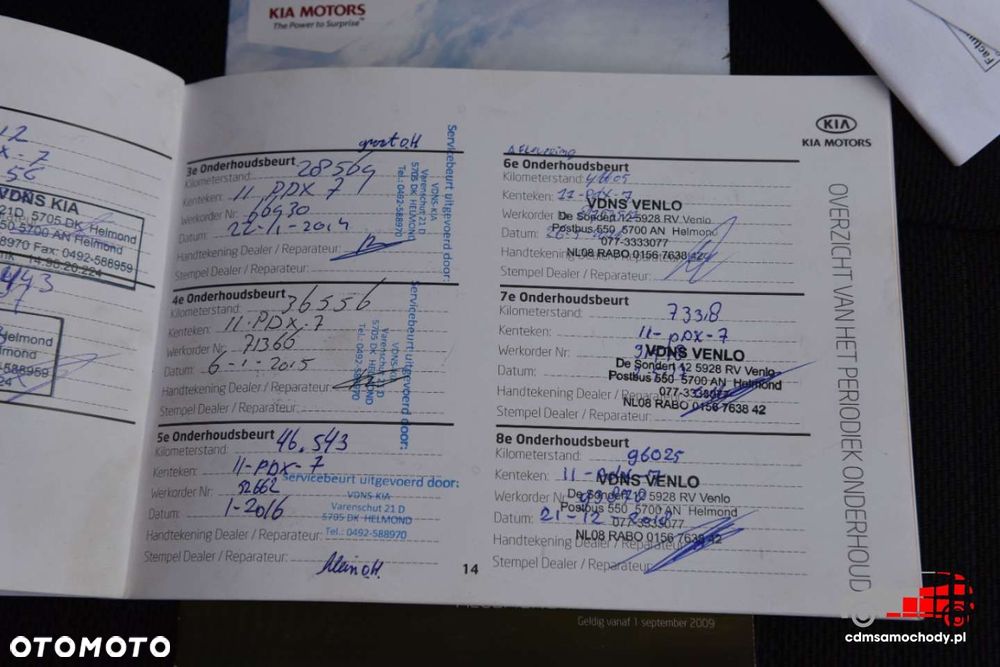 KIA MOTORS
The Power to Surprise™
KIA
KIA MOTORS
OVERZICHT VAN HET PERIODIEK ONDERHOUD
VDNS KIA
21 D, 5705 DK Helmond
550 5700 AN Helmond
8970 Fax: 0492-588959
14.90.20.224
Helmond
lmond
-588959
224
groot o.H
3e Onderhoudsbeurt
Kilometerstand: 28569
Kenteken: 11 PDX 7
Werkorder Nr: 60930
Datum: 22-1-2014
Handtekening Dealer / Reparateur:
Stempel Dealer / Reparateur:
Servicebeurt uitgevoerd door:
VDNS KIA
Varenschut 21 D
5705 DK HELMOND
Tel.: 0492-588970
4e Onderhoudsbeurt
Kilometerstand: 36556
Kenteken: 11-PDX-7
Werkorder Nr: 71366
Datum: 6-1-2015
Handtekening Dealer / Reparateur:
Stempel Dealer / Reparateur:
Servicebeurt uitgevoerd door:
VDNS KIA
Varenschut 21 D
5705 DK HELMOND
Tel.: 0492-588970
5e Onderhoudsbeurt
Kilometerstand: 46.543
Kenteken: 11-PDX-7
Werkorder Nr: 52662
Datum: 1-2016
Handtekening Dealer / Reparateur:
Stempel Dealer / Reparateur:
Servicebeurt uitgevoerd door:
VDNS KIA
Varenschut 21 D
5705 DK HELMOND
Tel.: 0492-588970
klein o.H.
14
Aflevering
6e Onderhoudsbeurt
Kilometerstand:
Kenteken: 11-PDX-7
Werkorder
Datum:
Handtekening
Stempel Dealer / Reparateur:
VDNS VENLO
De Sonden 12 5928 RV Venlo
Postbus 550 5700 AN Helmond
077-3333077
NL08 RABO 0156 7638 42
7e Onderhoudsbeurt
Kilometerstand: 73318
Kenteken: 11-PDX-7
Werkorder Nr:
Datum:
Handtekening Dealer / Reparateur:
Stempel Dealer / Reparateur:
VDNS VENLO
De Sonden 12 5928 RV Venlo
Postbus 550 5700 AN Helmond
077-3333077
NL08 RABO 0156 7638 42
8e Onderhoudsbeurt
Kilometerstand: 96025
Kenteken: 11-PDX-7
Werkorder Nr:
Datum: 21-12-2018
Handtekening Dealer / Reparateur:
Stempel Dealer / Reparateur:
VDNS VENLO
De Sonden 12 5928 RV Venlo
Postbus 550 5700 AN Helmond
077-3333077
NL08 RABO 0156 7638 42
Geldig vanaf 1 september 2009
OTOMOTO
cdmsamochody.pl